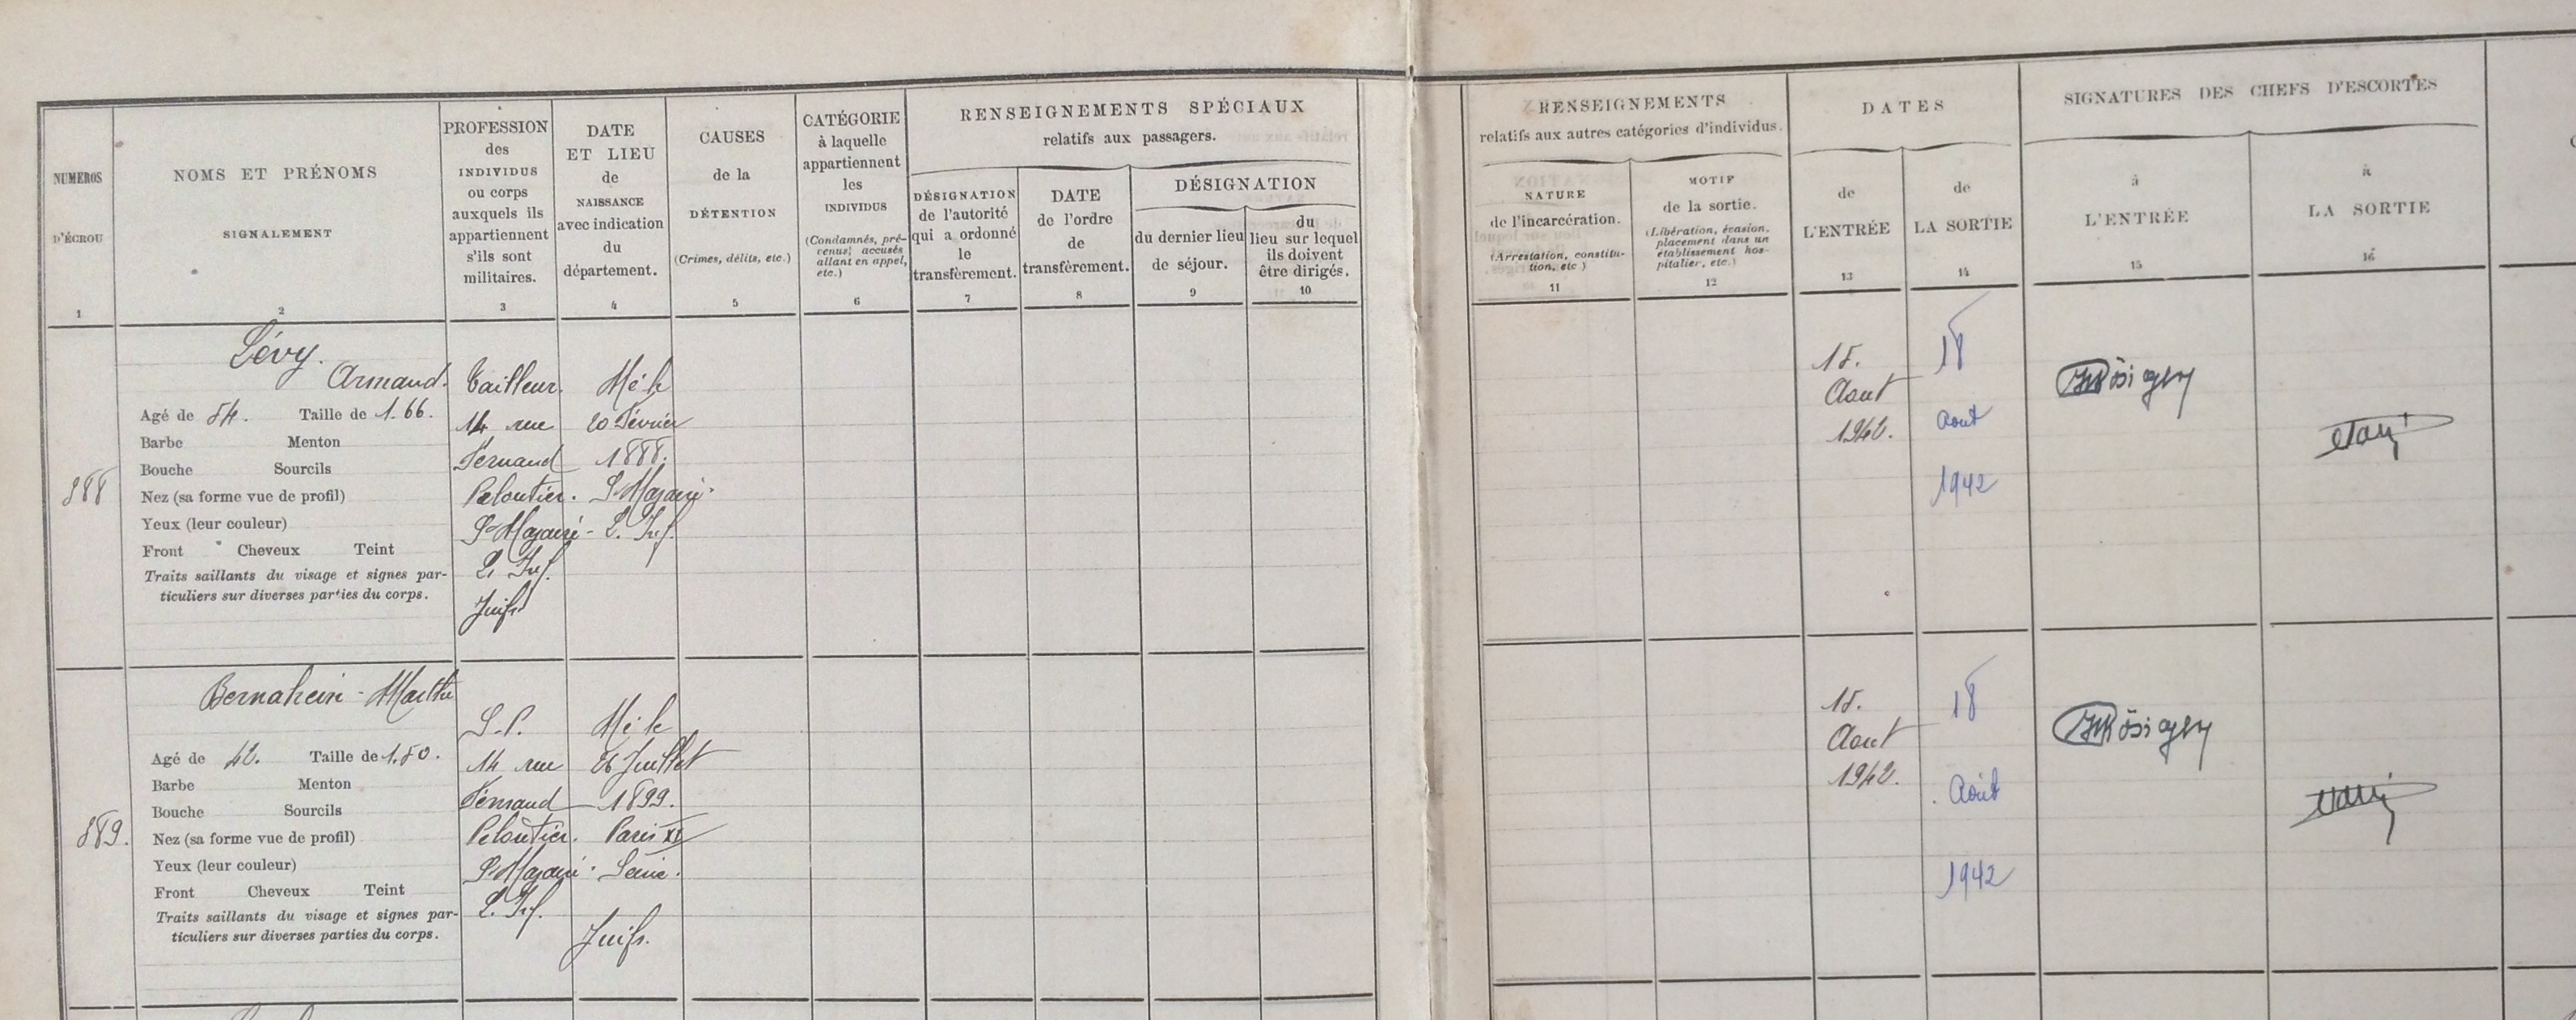 NUMEROS
D'ÉCROU
1
NOMS ET PRÉNOMS
SIGNALEMENT
2
PROFESSION
des
INDIVIDUS
ou corps
auxquels ils
appartiennent
s'ils sont
militaires.
3
DATE
ET LIEU
de
NAISSANCE
avec indication
du
département.
4
CAUSES
de la
DÉTENTION
(Crimes, délits, etc.)
5
CATÉGORIE
à laquelle
appartiennent
les
INDIVIDUS
(Condamnés, pré-
venus, accusés
allant en appel,
etc.)
6
RENSEIGNEMENTS SPÉCIAUX
relatifs aux passagers.
DÉSIGNATION
de l'autorité
qui a ordonné
le
transfèrement.
7
DATE
de l'ordre
de
transfèrement.
8
DÉSIGNATION
du dernier lieu
de séjour.
9
du
lieu sur lequel
ils doivent
être dirigés.
10
RENSEIGNEMENTS
relatifs aux autres catégories d'individus.
NATURE
de l'incarcération.
(Arrestation, constitu-
tion, etc.)
11
MOTIF
de la sortie.
(Libération, évasion,
placement dans un
établissement hos-
pitalier, etc.)
12
DATES
de
L'ENTRÉE
13
de
LA SORTIE
14
SIGNATURES DES CHEFS D'ESCORTES
à
L'ENTRÉE
15
à
LA SORTIE
16
888
Lévy.
Armand.
Agé de 54. Taille de 1.66.
Barbe Menton
Bouche Sourcils
Nez (sa forme vue de profil)
Yeux (leur couleur)
Front Cheveux Teint
Traits saillants du visage et signes par-
ticuliers sur diverses parties du corps.
Tailleur.
14 rue
Fernand
Peloutier.
St Nazaire
L. Inf.
Juifs
Né le
20 Février
1888.
St Nazaire
L. Inf.
15.
Aout
1942.
18
Aout
1942
889.
Bernaheim - Marthe
Agé de 42. Taille de 1.50.
Barbe Menton
Bouche Sourcils
Nez (sa forme vue de profil)
Yeux (leur couleur)
Front Cheveux Teint
Traits saillants du visage et signes par-
ticuliers sur diverses parties du corps.
S.P.
14 rue
Fernand
Peloutier.
St Nazaire
L. Inf.
Né le
26 Juillet
1899.
Paris XI
Seine.
Juifs.
15.
Aout
1942.
18
Août
1942